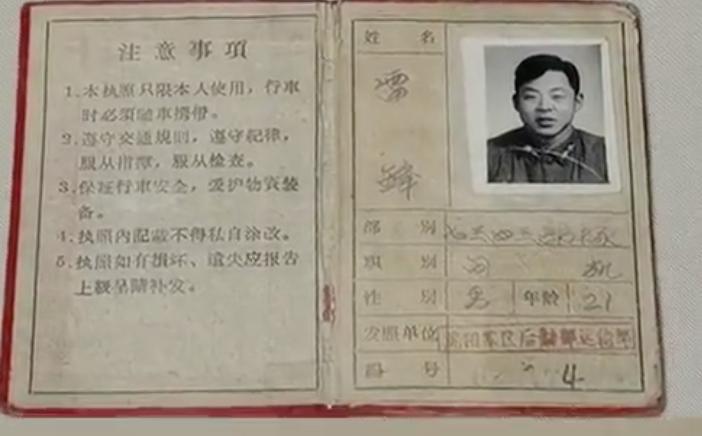 注意事項
1.本执照只限本人使用，行車
时必须随車携带。
2.遵守交通規則，遵守紀律，
服从指揮，服从检查。
3.保証行車安全，爱护物資裝
备。
4.执照內記載不得私自涂改。
5.执照如有損坏、遺失应报告
上級呈請补发。
姓 名
雷
鋒
部 别
职 别 司 机
性 别 男 年龄 21
发照单位 沈阳軍区后勤部运輸部
号 4